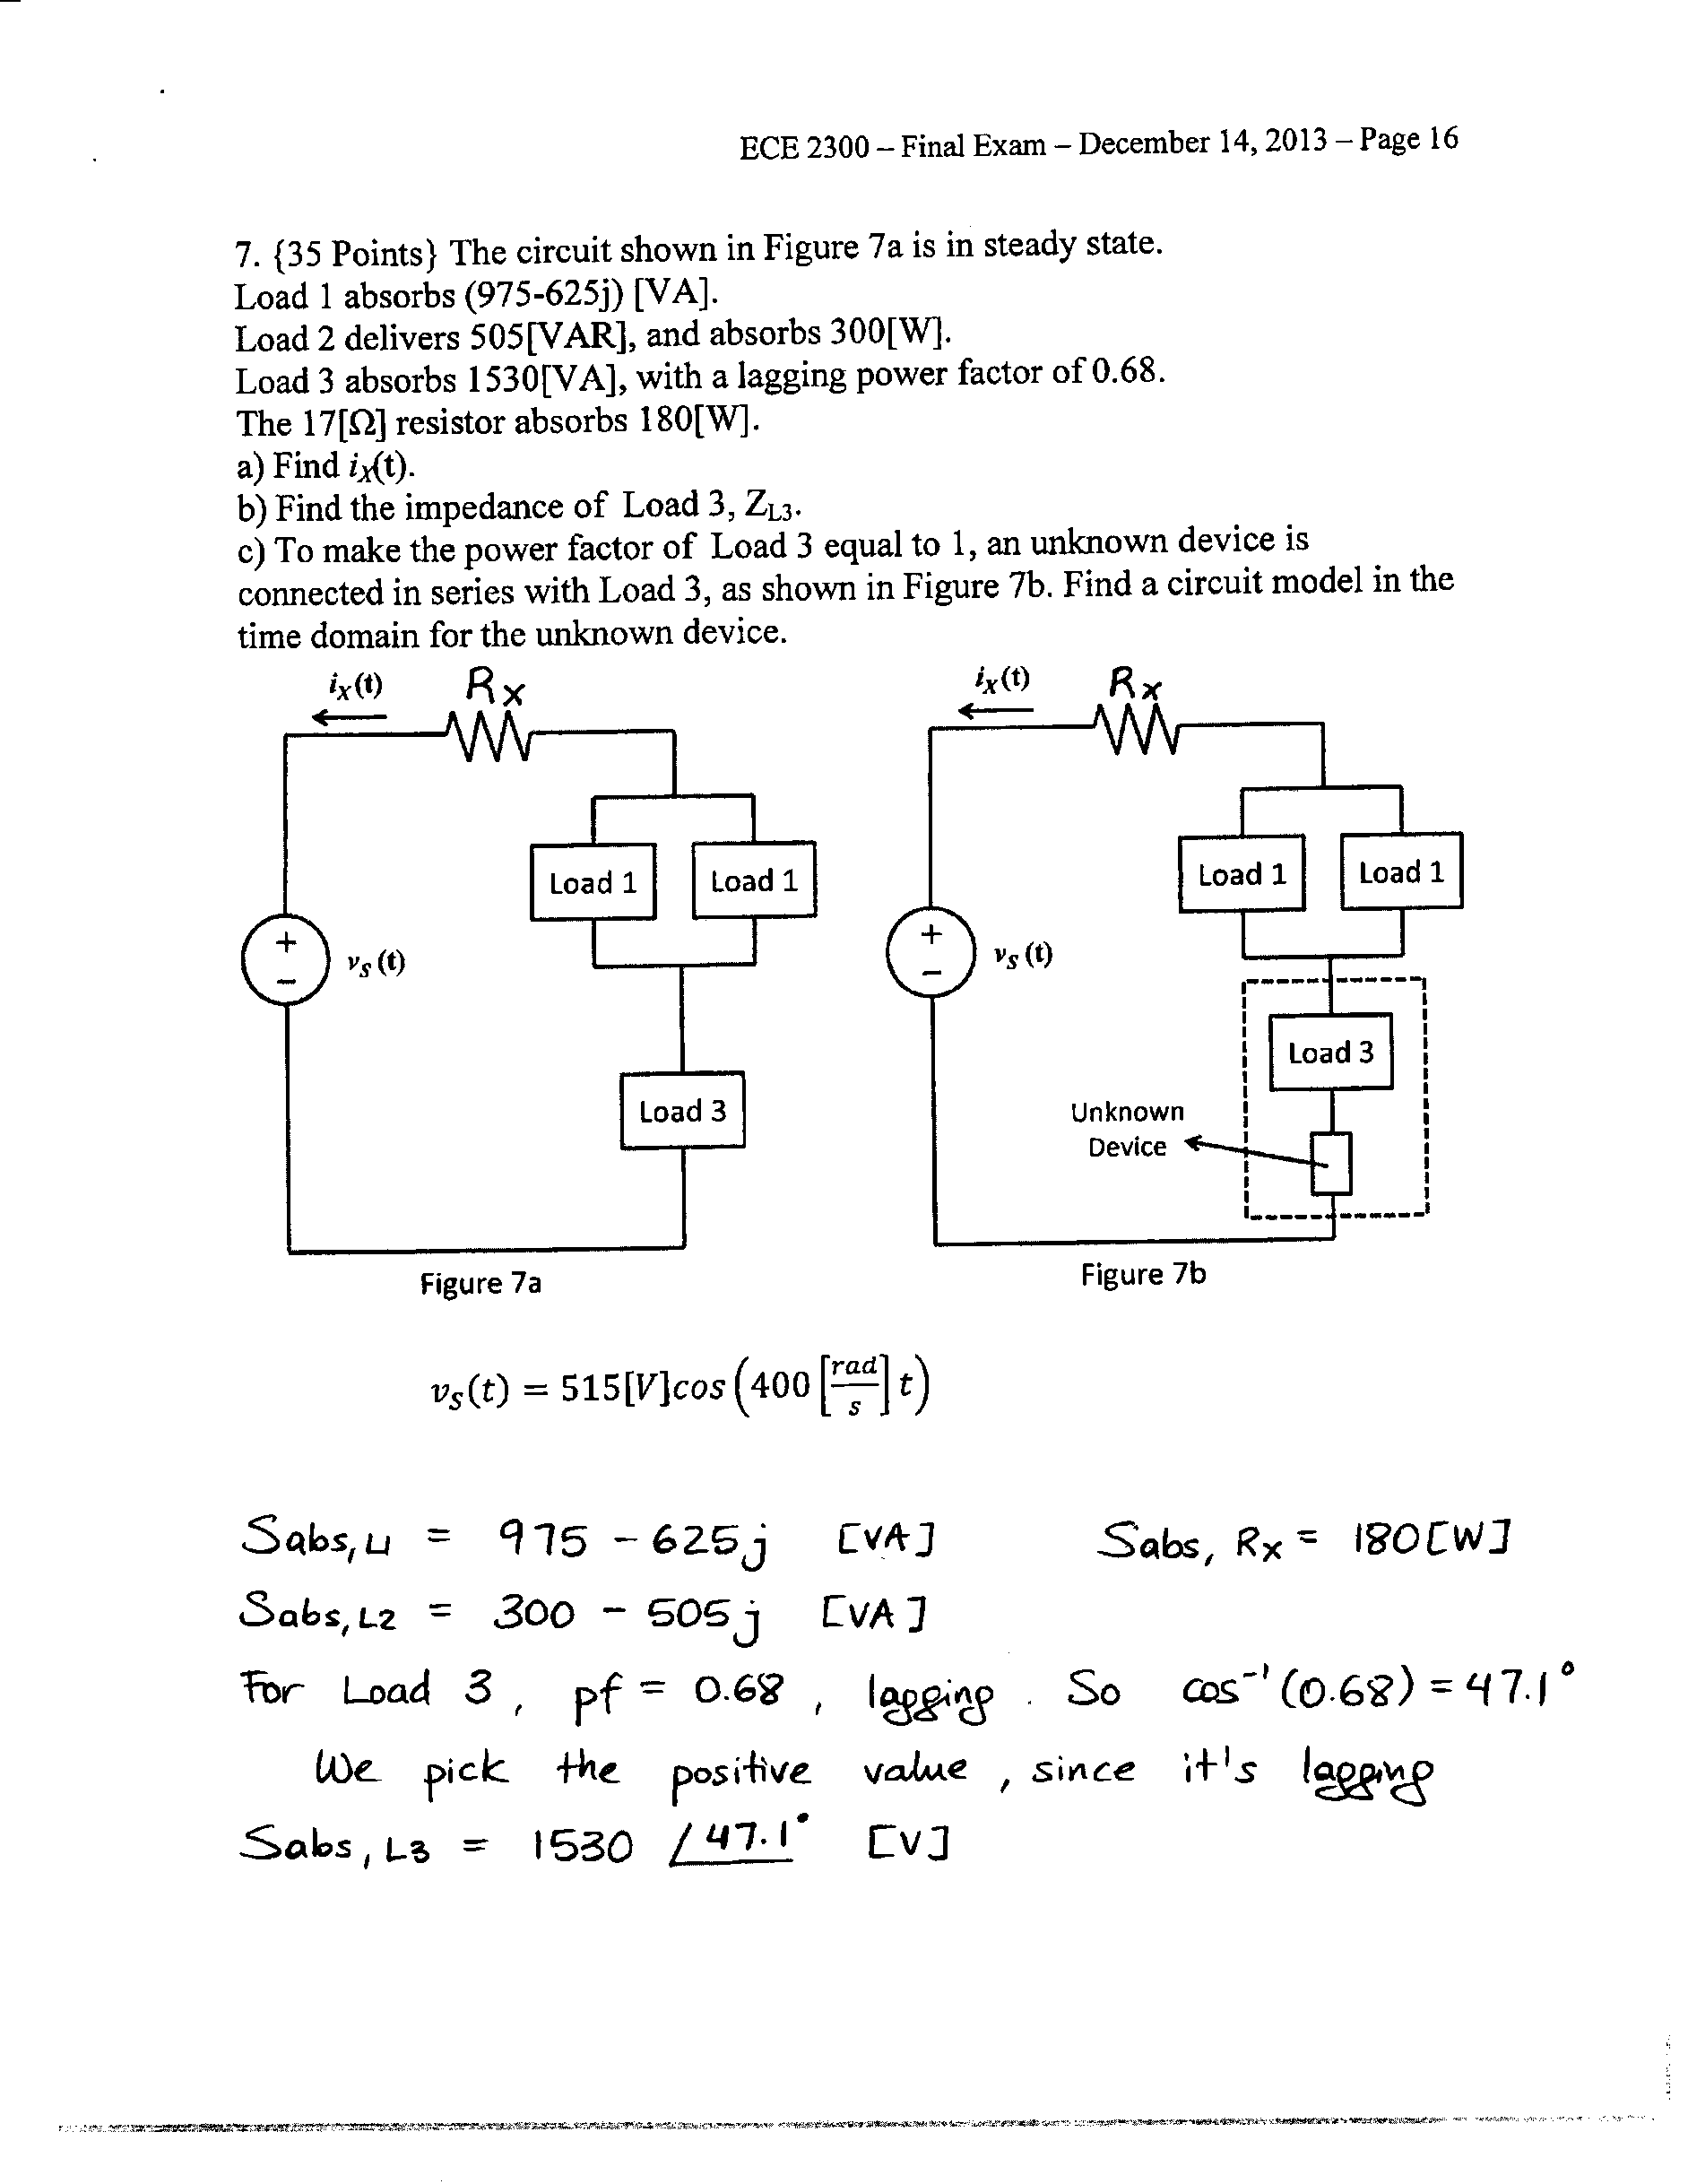 ECE 2300 – Final Exam – December 14, 2013 – Page 16
7. {35 Points} The circuit shown in Figure 7a is in steady state.
Load 1 absorbs (975-625j) [VA].
Load 2 delivers 505[VAR], and absorbs 300[W].
Load 3 absorbs 1530[VA], with a lagging power factor of 0.68.
The 17[Ω] resistor absorbs 180[W].
a) Find iX(t).
b) Find the impedance of Load 3, ZL3.
c) To make the power factor of Load 3 equal to 1, an unknown device is
connected in series with Load 3, as shown in Figure 7b. Find a circuit model in the
time domain for the unknown device.
iX(t)
RX
Load 1
Load 1
+
vS(t)
−
Load 3
Figure 7a
iX(t)
RX
Load 1
Load 1
+
vS(t)
−
Load 3
Unknown
Device
Figure 7b
vS(t) = 515[V]cos(400[rad/s]t)
Sabs,L1 = 975 - 625j [VA] Sabs,RX = 180[W]
Sabs,L2 = 300 - 505j [VA]
For Load 3, pf = 0.68, lagging. So cos⁻¹(0.68) = 47.1°
We pick the positive value, since it's lagging
Sabs,L3 = 1530 ∠47.1° [V]